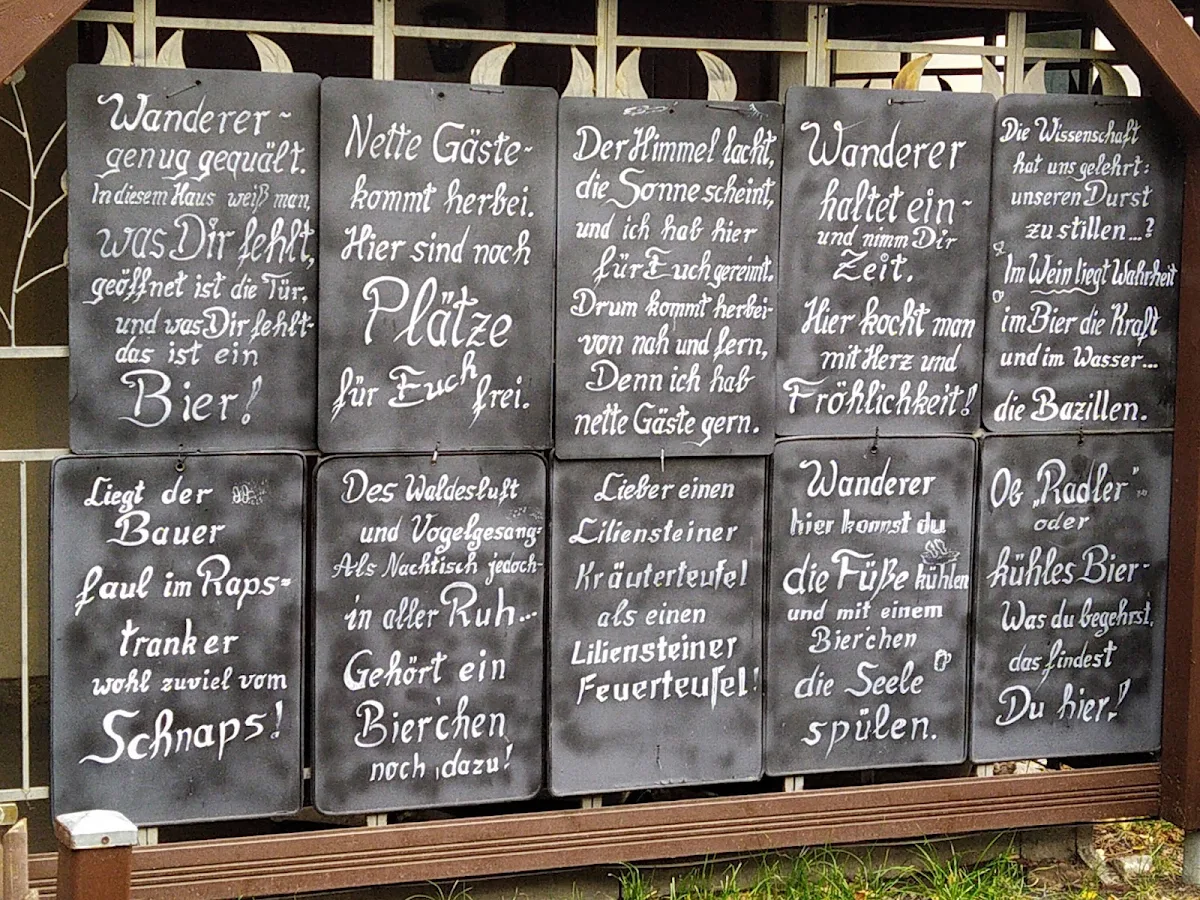 Wanderer ~
genug gequält.
In diesem Haus weiß man,
was Dir fehlt,
geöffnet ist die Tür,
und was Dir fehlt-
das ist ein
Bier!
Nette Gäste-
kommt herbei.
Hier sind noch
Plätze
für Euch frei.
Der Himmel lacht,
die Sonne scheint,
und ich hab hier
für Euch gereimt.
Drum kommt herbei-
von nah und fern,
Denn ich hab
nette Gäste gern.
Wanderer
haltet ein-
und nimm Dir
Zeit.
Hier kocht man
mit Herz und
Fröhlichkeit!
Die Wissenschaft
hat uns gelehrt:
unseren Durst
zu stillen...?
Im Wein liegt Wahrheit
im Bier die Kraft
und im Wasser...
die Bazillen.
Liegt der
Bauer
faul im Raps=
trank er
wohl zuviel vom
Schnaps!
Des Waldesluft
und Vogelgesang:
Als Nachtisch jedoch-
in aller Ruh...
Gehört ein
Bierchen
noch dazu!
Lieber einen
Liliensteiner
Kräuterteufel
als einen
Liliensteiner
Feuerteufel!
Wanderer
hier kannst du
die Füße kühlen
und mit einem
Bier'chen
die Seele
spülen.
Ob „Radler"
oder
kühles Bier-
Was du begehrst,
das findest
Du hier!